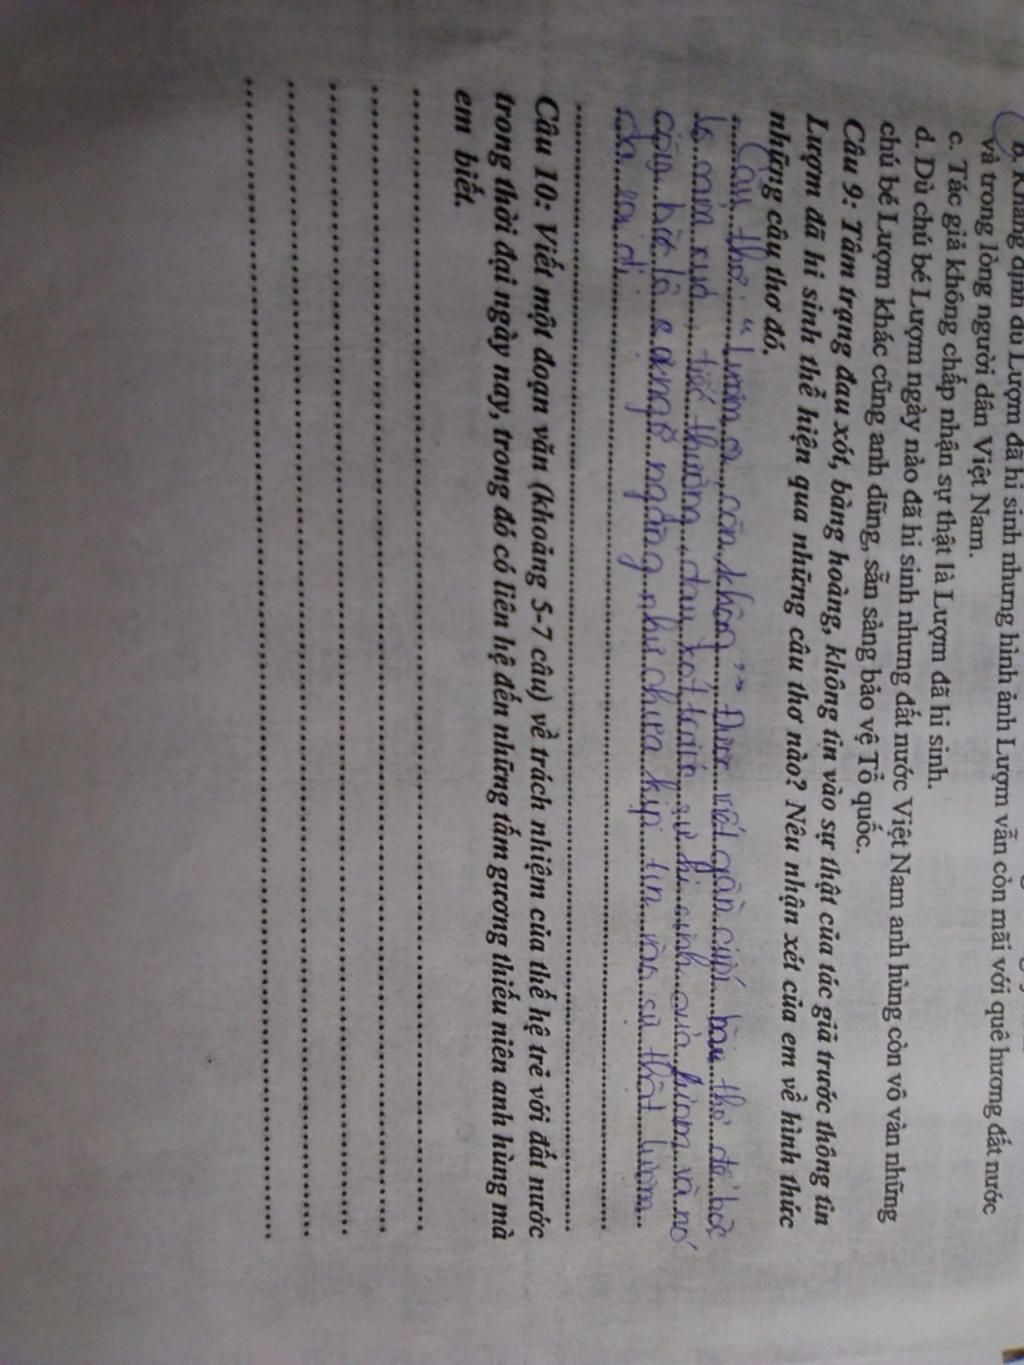 b. Khẳng định dù Lượm đã hi sinh nhưng hình ảnh Lượm vẫn còn mãi với quê hương đất nước
và trong lòng người dân Việt Nam.
c. Tác giả không chấp nhận sự thật là Lượm đã hi sinh.
d. Dù chú bé Lượm ngày nào đã hi sinh nhưng đất nước Việt Nam anh hùng còn vô vàn những
chú bé Lượm khác cũng anh dũng, sẵn sàng bảo vệ Tổ quốc.
Câu 9: Tâm trạng đau xót, bàng hoàng, không tin vào sự thật của tác giả trước thông tin
Lượm đã hi sinh thể hiện qua những câu thơ nào? Nêu nhận xét của em về hình thức
những câu thơ đó.
Câu thơ "Lượm ơi, còn không" Được viết gần cuối bài thơ để bộc
lộ cảm xúc tiếc thương, đau xót trước sự hi sinh của Lượm và nó
cũng là ngỡ ngàng như chưa kịp tin vào sự thật Lượm
đã ra đi
Câu 10: Viết một đoạn văn (khoảng 5-7 câu) về trách nhiệm của thế hệ trẻ với đất nước
trong thời đại ngày nay, trong đó có liên hệ đến những tấm gương thiếu niên anh hùng mà
em biết.